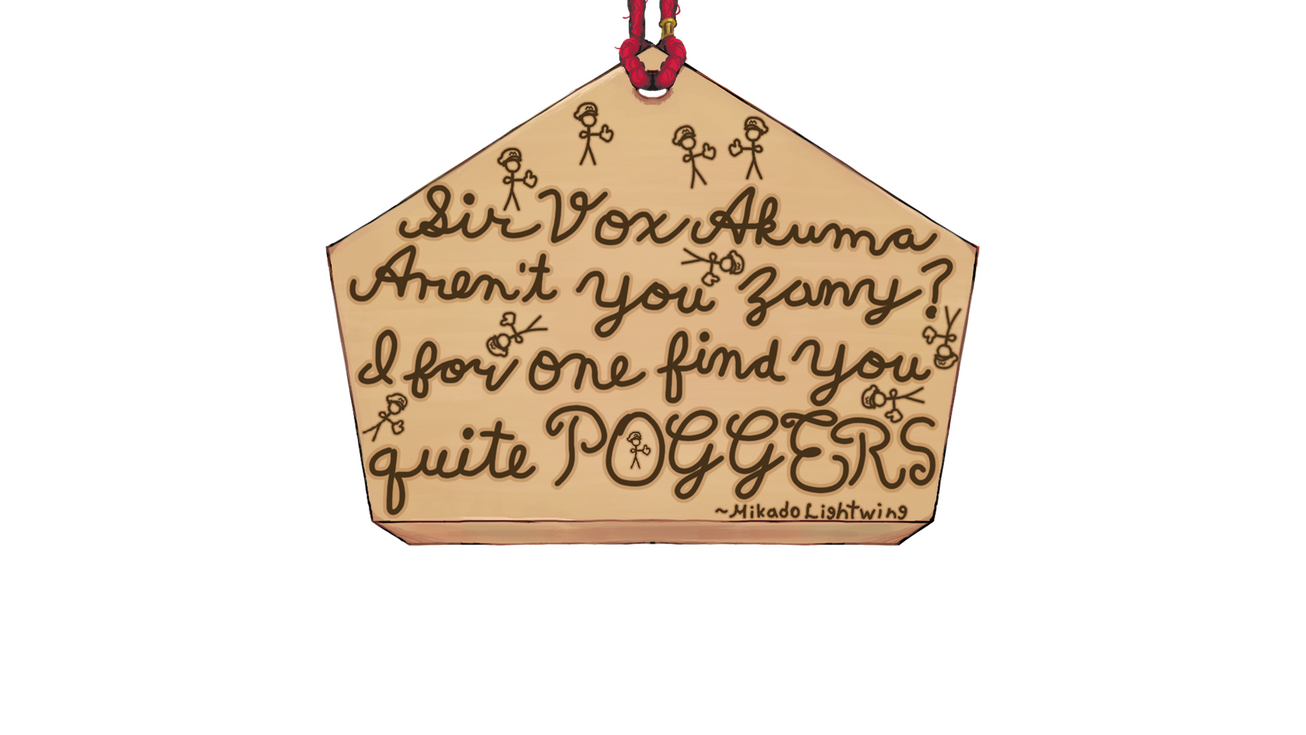 Sir Vox Akuma
Aren't you zany?
I for one find you
quite POGGERS
~Mikado Lightwing